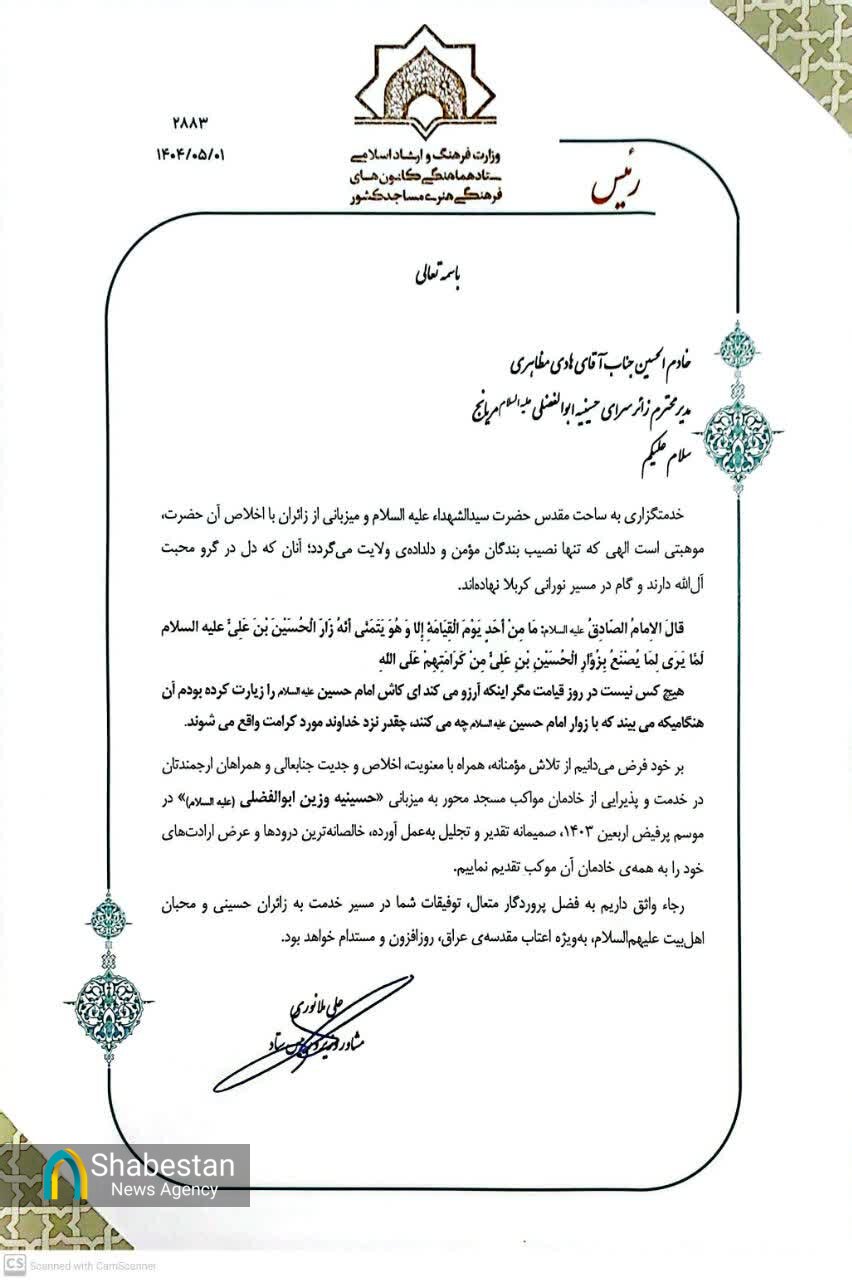 ۲۸۸۳
۱۴۰۴/۰۵/۰۱
وزارت فرهنگ و ارشاد اسلامی
ستاد هماهنگی کانون‌های
فرهنگی هنری مساجد کشور
رئیس
باسمه تعالی
خادم الحسین جناب آقای هادی مظاهری
مدیر محترم زائرسرای حسینیه ابوالفضلی علیه السلام مریانج
سلام علیکم
خدمتگزاری به ساحت مقدس حضرت سیدالشهداء علیه السلام و میزبانی از زائران با اخلاص آن حضرت،
موهبتی است الهی که تنها نصیب بندگان مؤمن و دلداده‌ی ولایت می‌گردد؛ آنان که دل در گرو محبت
آل‌الله دارند و گام در مسیر نورانی کربلا نهاده‌اند.
قالَ الاِمامُ الصّادِقُ علیه السلام: مَا مِنْ أَحَدٍ یَوْمَ الْقِیَامَةِ إِلا وَ هُوَ یَتَمَنَّى أَنَّهُ زَارَ الْحُسَیْنَ بْنَ عَلِیٍّ علیه السلام
لَمَّا یَرَى لِمَا یُصْنَعُ بِزُوَّارِ الْحُسَیْنِ بْنِ عَلِیٍّ مِنْ کَرَامَتِهِمْ عَلَى اللهِ
هیچ کس نیست در روز قیامت مگر اینکه آرزو می کند ای کاش امام حسین علیه السلام را زیارت کرده بودم آن
هنگامیکه می بیند که با زوار امام حسین علیه السلام چه می کنند، چقدر نزد خداوند مورد کرامت واقع می شوند.
بر خود فرض می‌دانیم از تلاش مؤمنانه، همراه با معنویت، اخلاص و جدیت جنابعالی و همراهان ارجمندتان
در خدمت و پذیرایی از خادمان مواکب مسجد محور به میزبانی «حسینیه وزین ابوالفضلی (علیه السلام)» در
موسم پرفیض اربعین ۱۴۰۳، صمیمانه تقدیر و تجلیل به‌عمل آورده، خالصانه‌ترین درودها و عرض ارادت‌های
خود را به همه‌ی خادمان آن موکب تقدیم نماییم.
رجاء واثق داریم به فضل پروردگار متعال، توفیقات شما در مسیر خدمت به زائران حسینی و محبان
اهل‌بیت علیهم‌السلام، به‌ویژه اعتاب مقدسه‌ی عراق، روزافزون و مستدام خواهد بود.
علی ملانوری
مشاور وزیر و رئیس ستاد
Shabestan
News Agency
CS Scanned with CamScanner